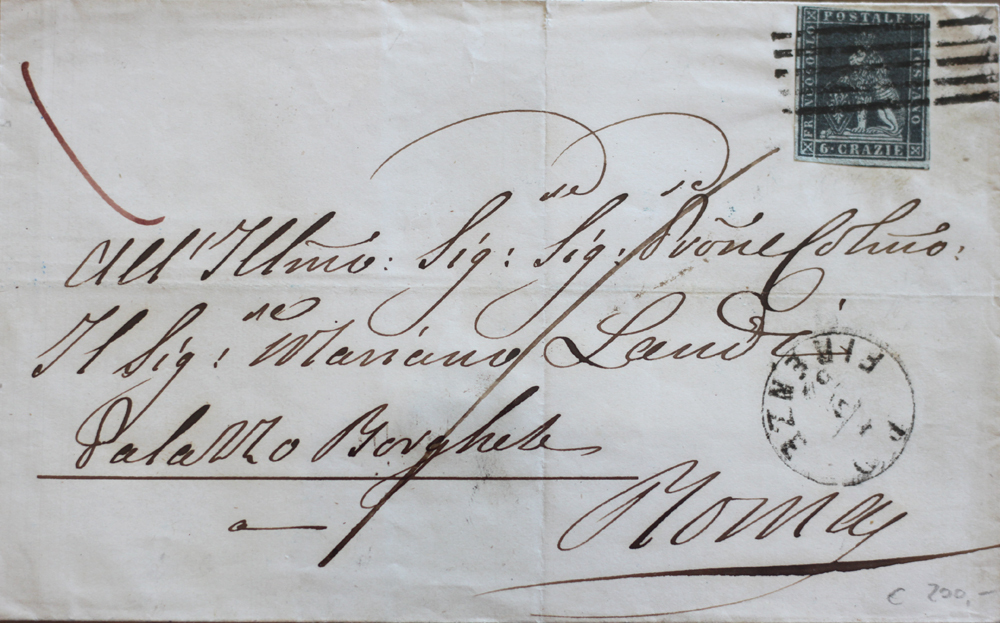 FRANCOBOLLO POSTALE TOSCANO
6 · CRAZIE
All' Illmo: Sig:re Sig:re Prone Colmo:
Il Sig:re Mariano Landi
FIRENZE
Palazzo Borghese
Roma
C 200,-